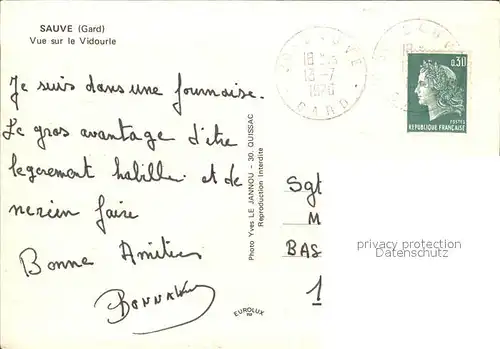 SAUVE (Gard)
Vue sur le Vidourle
Je suis dans une fournaise.
Le gros avantage d'être
legerement habille et de
ne rien faire
Bonne Amities
18 H
13-7
1970
GARD
0,30
POSTES
REPUBLIQUE FRANÇAISE
Photo Yves LE JANNOU - 30. QUISSAC
Reproduction Interdite
EUROLUX
Sgt
M
BAS
1
privacy protection
Datenschutz